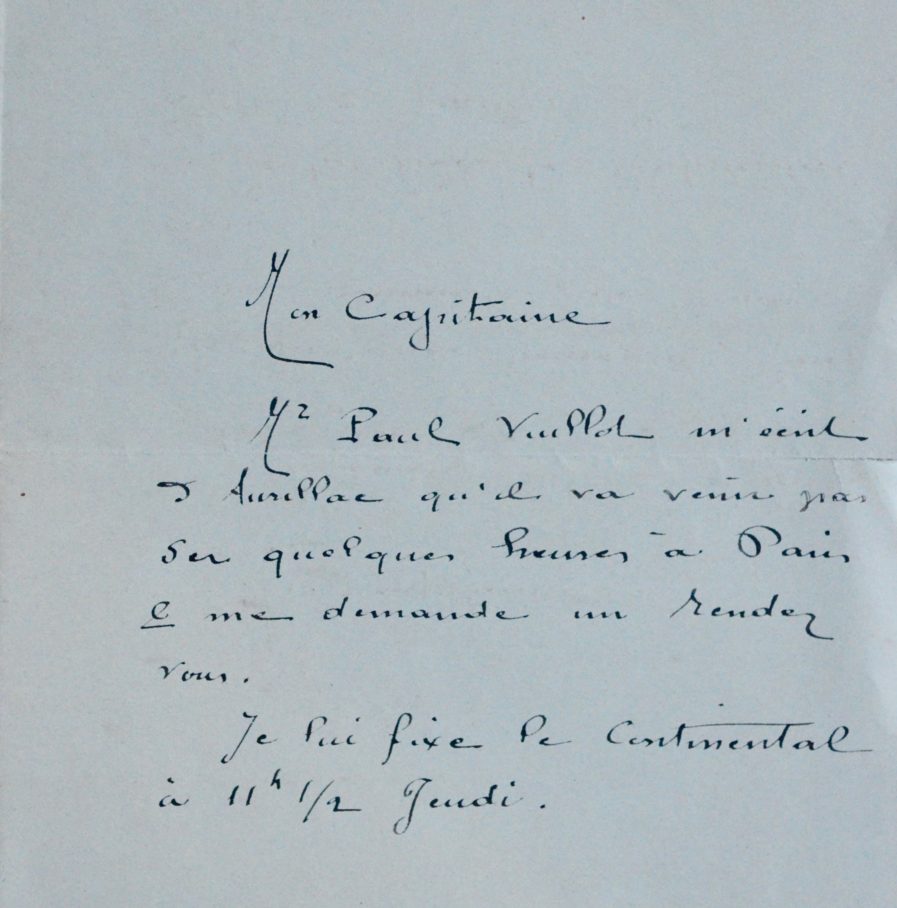 Mon Capitaine
Mr Paul Vuillot m'écrit
d'Aurillac qu'il va venir pas
ser quelques heures à Paris
& me demande un rendez
vous.
Je lui fixe le Continental
à 11h 1/2 Jeudi.